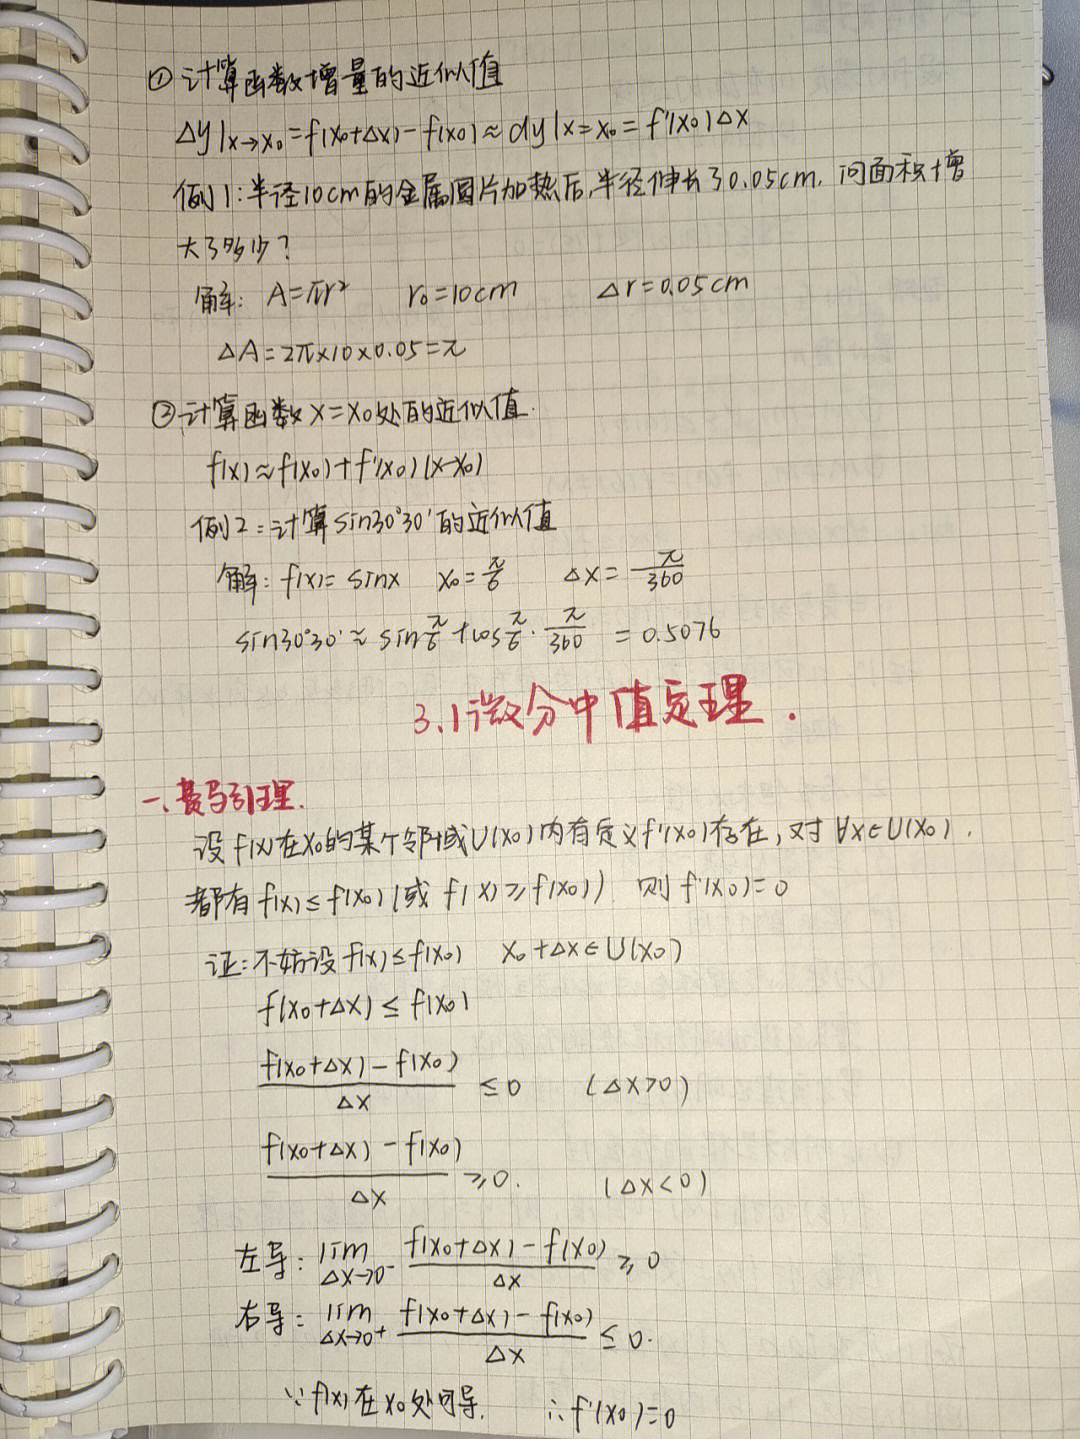 ①计算函数增量的近似值
Δy|x→x₀=f(x₀+Δx)-f(x₀)≈dy|x=x₀=f'(x₀)Δx
例1:半径10cm的金属圆片加热后,半径伸长了0.05cm,问面积增
大了多少?
解: A=πr² r₀=10cm Δr=0.05cm
ΔA=2π×10×0.05=π
②计算函数x=x₀处的近似值.
f(x)≈f(x₀)+f'(x₀)(x-x₀)
例2:计算sin30°30'的近似值
解: f(x)=sinx x₀=π/6 Δx=π/360
sin30°30'≈sinπ/6+cosπ/6·π/360=0.5076
3.1微分中值定理.
一.费马引理.
设f(x)在x₀的某个邻域U(x₀)内有定义f'(x₀)存在,对∀x∈U(x₀).
都有f(x)≤f(x₀)(或f(x)≥f(x₀)) 则f'(x₀)=0
证:不妨设f(x)≤f(x₀) x₀+Δx∈U(x₀)
f(x₀+Δx)≤f(x₀)
f(x₀+Δx)-f(x₀)/Δx ≤0 (Δx>0)
f(x₀+Δx)-f(x₀)/Δx ≥0. (Δx<0)
左导: lim Δx→0⁻ f(x₀+Δx)-f(x₀)/Δx ≥0
右导: lim Δx→0⁺ f(x₀+Δx)-f(x₀)/Δx ≤0.
∵f(x)在x₀处可导. ∴f'(x₀)=0